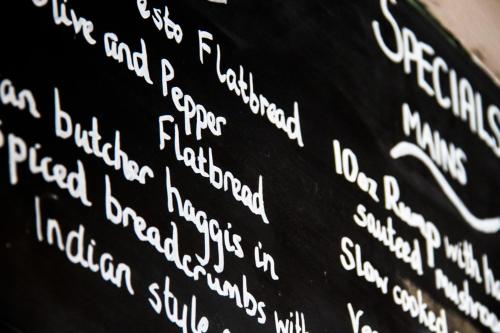 esto Flatbread
Olive and Pepper
Flatbread
an butcher haggis in
spiced breadcrumbs with
Indian style
SPECIALS
MAINS
10oz Rump with
sauteed
Slow cooked